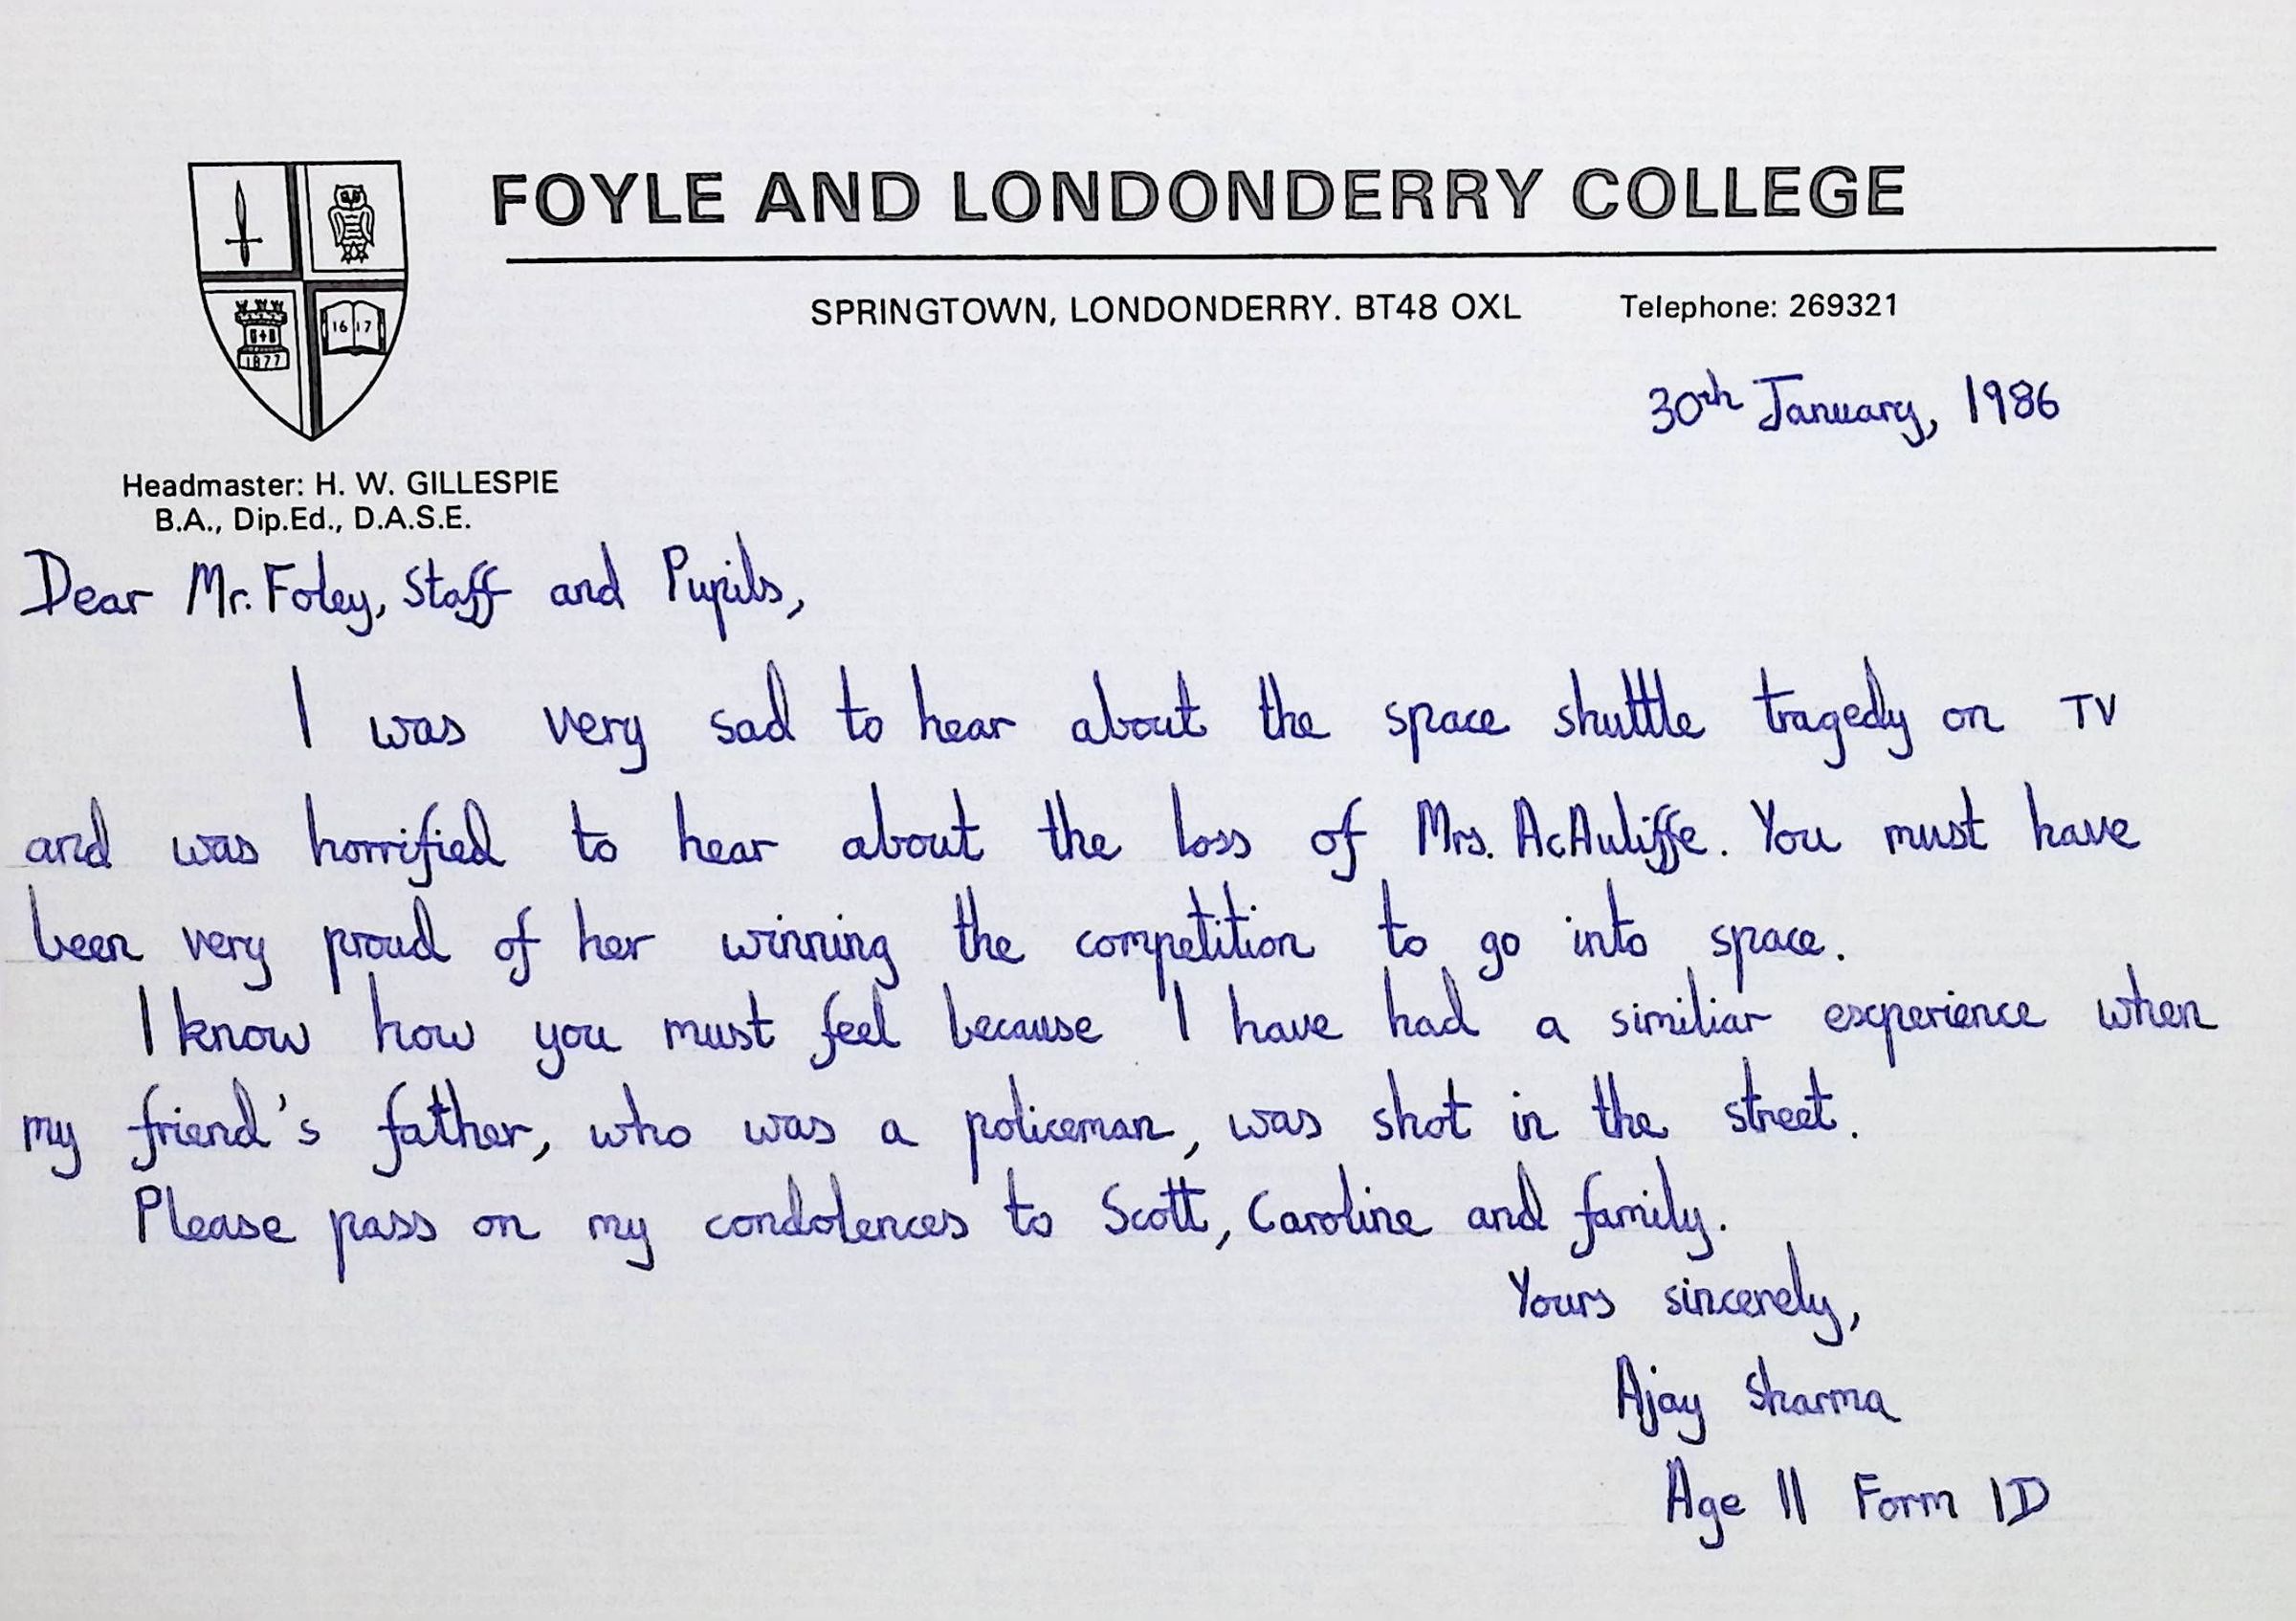 FOYLE AND LONDONDERRY COLLEGE
SPRINGTOWN, LONDONDERRY. BT48 OXL Telephone: 269321
16 17
1877
30th January, 1986
Headmaster: H. W. GILLESPIE
B.A., Dip.Ed., D.A.S.E.
Dear Mr. Foley, Staff and Pupils,
I was very sad to hear about the space shuttle tragedy on TV
and was horrified to hear about the loss of Mrs. AcAuliffe. You must have
been very proud of her winning the competition to go into space.
I know how you must feel because I have had a similiar experience when
my friend's father, who was a policeman, was shot in the street.
Please pass on my condolences to Scott, Caroline and family.
Yours sincerely,
Ajay Sharma
Age 11 Form 1D